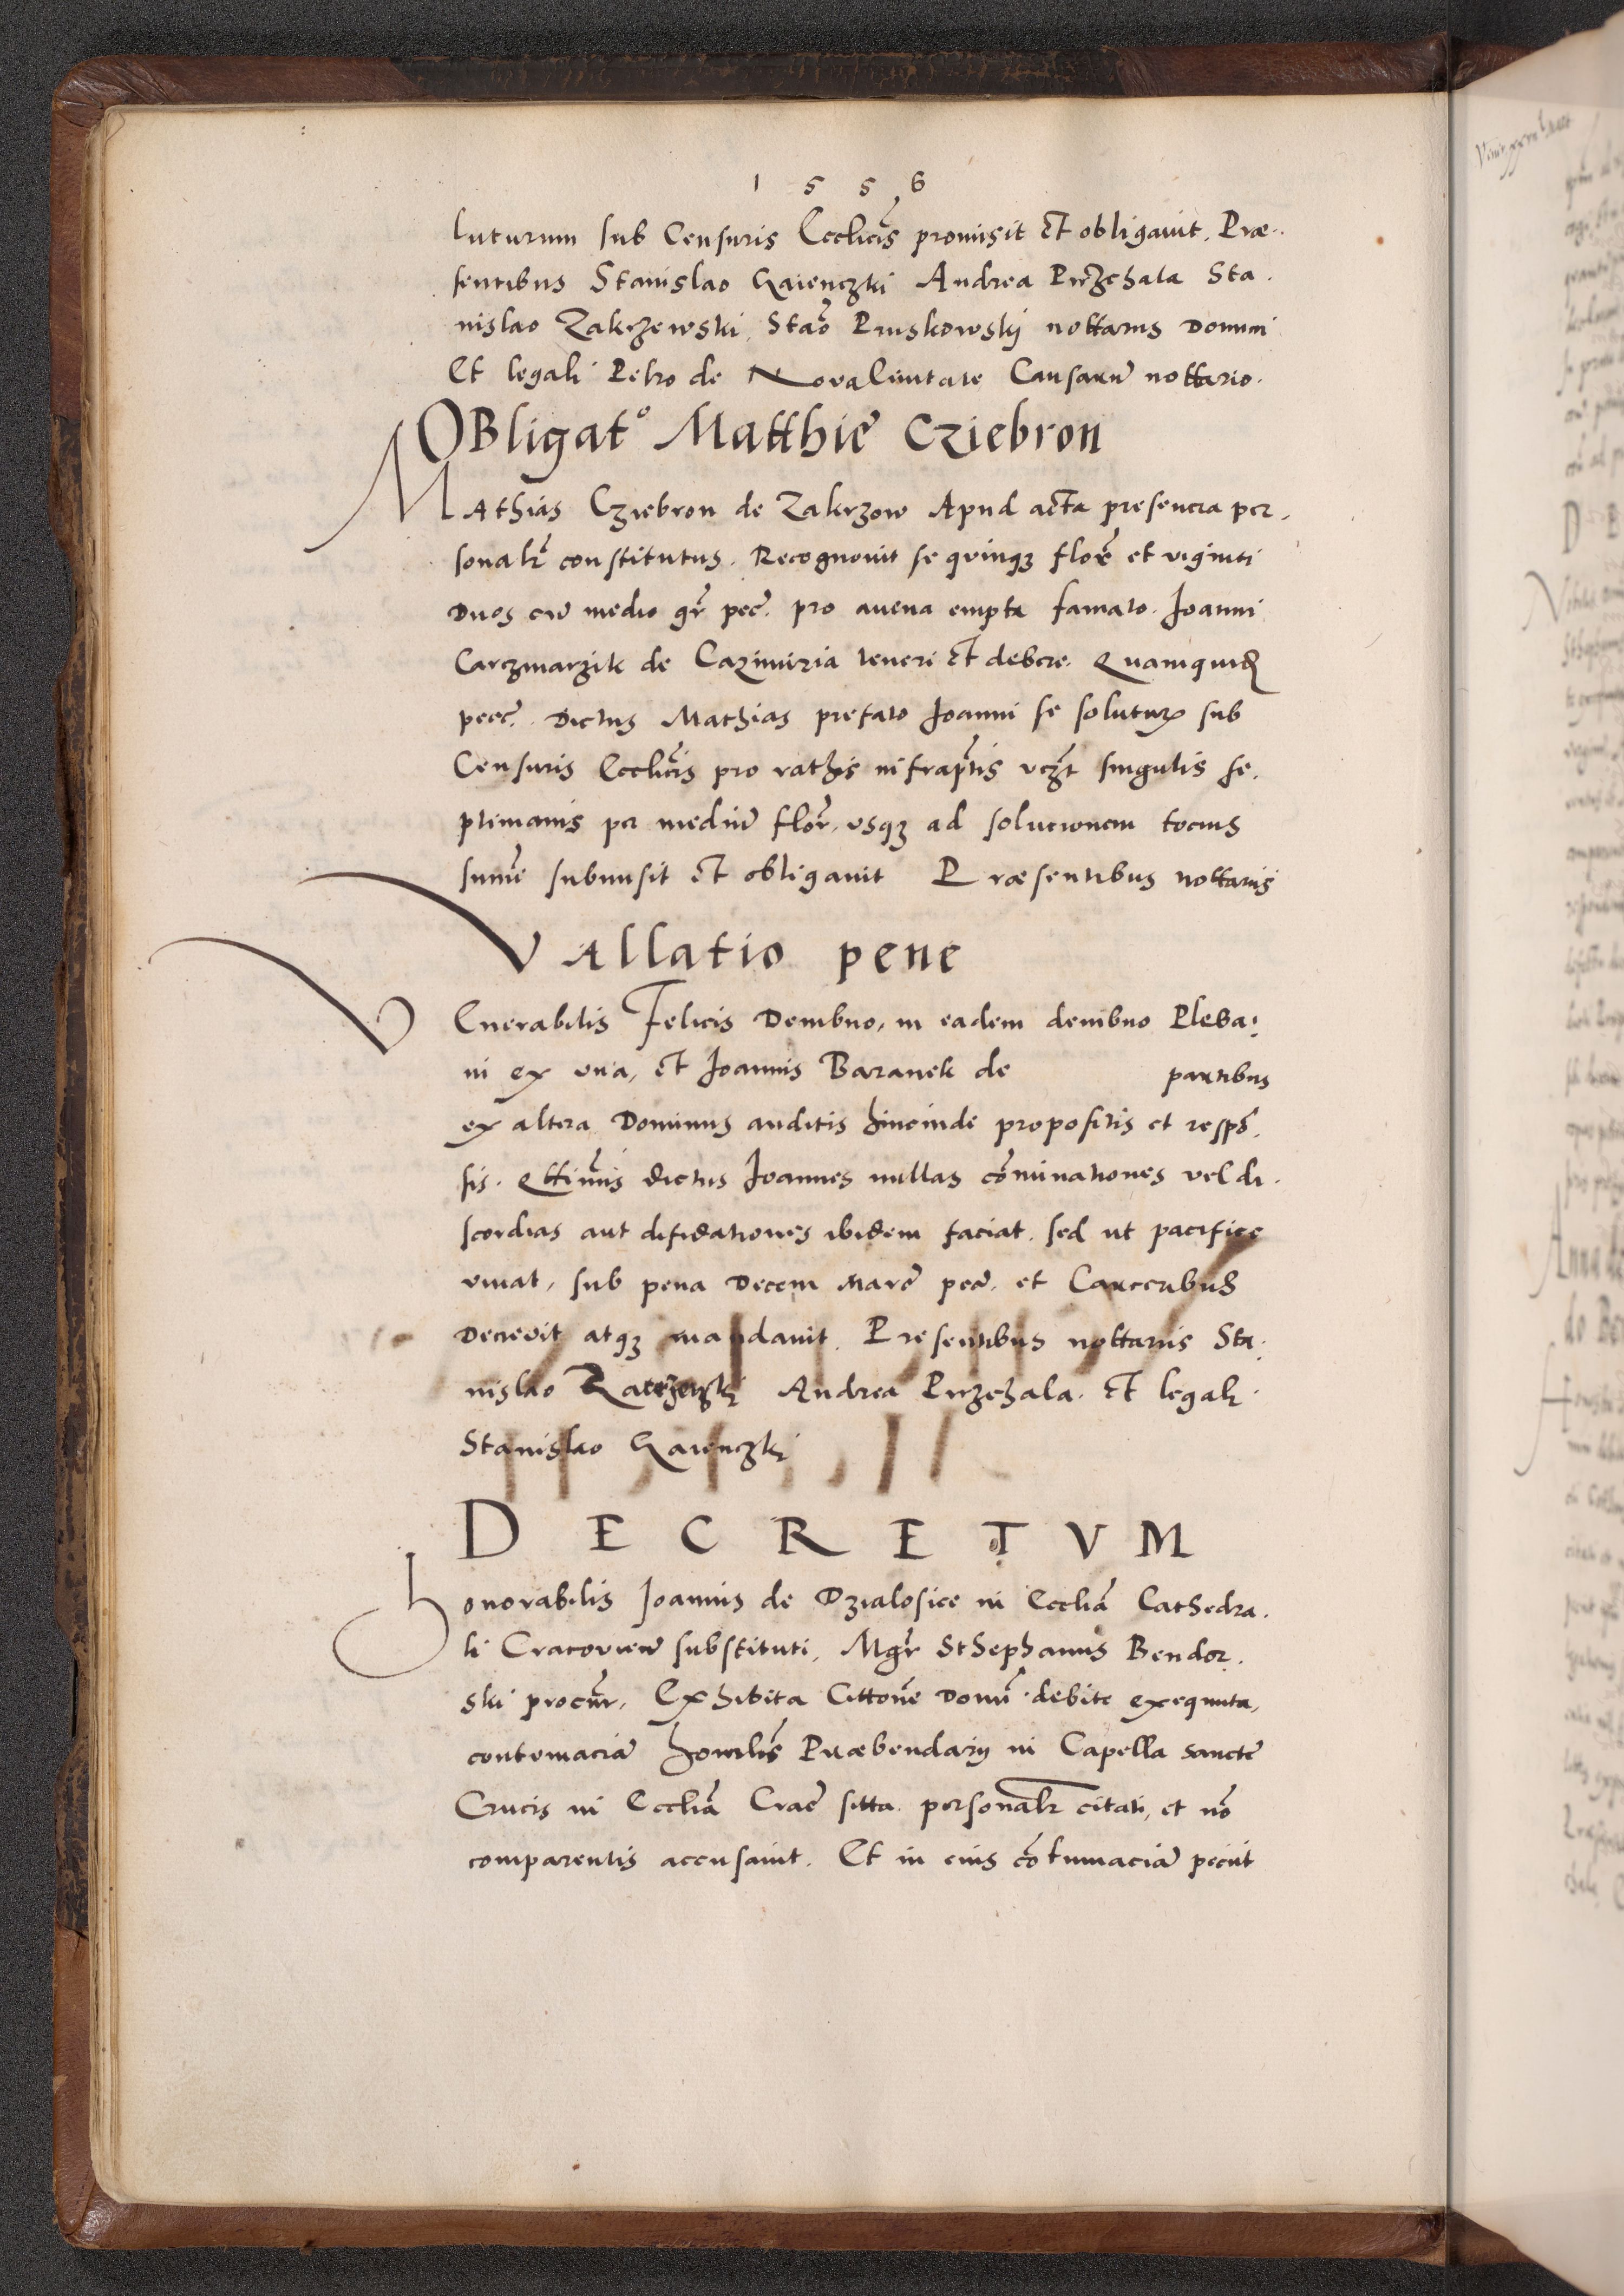 1 5 5 6
luturum sub Censuris Ecclicis promisit et obligavit. Præ-
sentibus Stanislao Gaienczki Andrea Przechala Sta-
nislao Zakrzewski, Stao Pruskowskij nottariis Domini
Et legali Petro de Nova Civitate Causarum nottario.
OBligato Matthie Cziebron
MAthias Cziebron de Zakrzow Apud acta presencia per-
sonalr constitutus. Recognovit se quinqz flore et viginti
Duos cum medio gr pec. pro avena empta famato Joanni
Carczmarzik de Cazimiria teneri et debere. Quamquidem
pecc. Dictus Mathias prefato Joanni se soluturum sub
Censuris Ecclicis pro rathis infraptis vczt singulis se-
ptimanis per medium flor. usqz ad solucionem tocius
sume submisit et obligavit Præsentibus nottariis
VAllatio pene
VEnerabilis Felicis Dembno, in eadem dembno Pleba-
ni ex una, et Joannis Baranek de partibus
ex altera Dominus auditis hincinde propositis et respo-
sis. Qttinus dictus Joannes nullas cominationes vel di-
scordias aut difidationes ibidem faciat. sed ut pacifice
vivat, sub pena Decem Marc pec. et Carceribus
Decrevit atqz mandavit. Presentibus nottariis Sta-
nislao Andrea Przechala. et legalr
Stanislao Gaienczki
DECRETVM
Honorabilis Joannis de Dzialosice in Ecclia Cathedra-
li Cracovien substituti, Mgr Sthephanus Bendor-
ski procur. Exhibita Cittone Domi debite exequuta,
contumacia honrilis Præbendarij in Capella sancte
Crucis in Ecclia Crac sitta. personalr citati, et no
comparentis accusavit. Et in eius cotumacia peciit